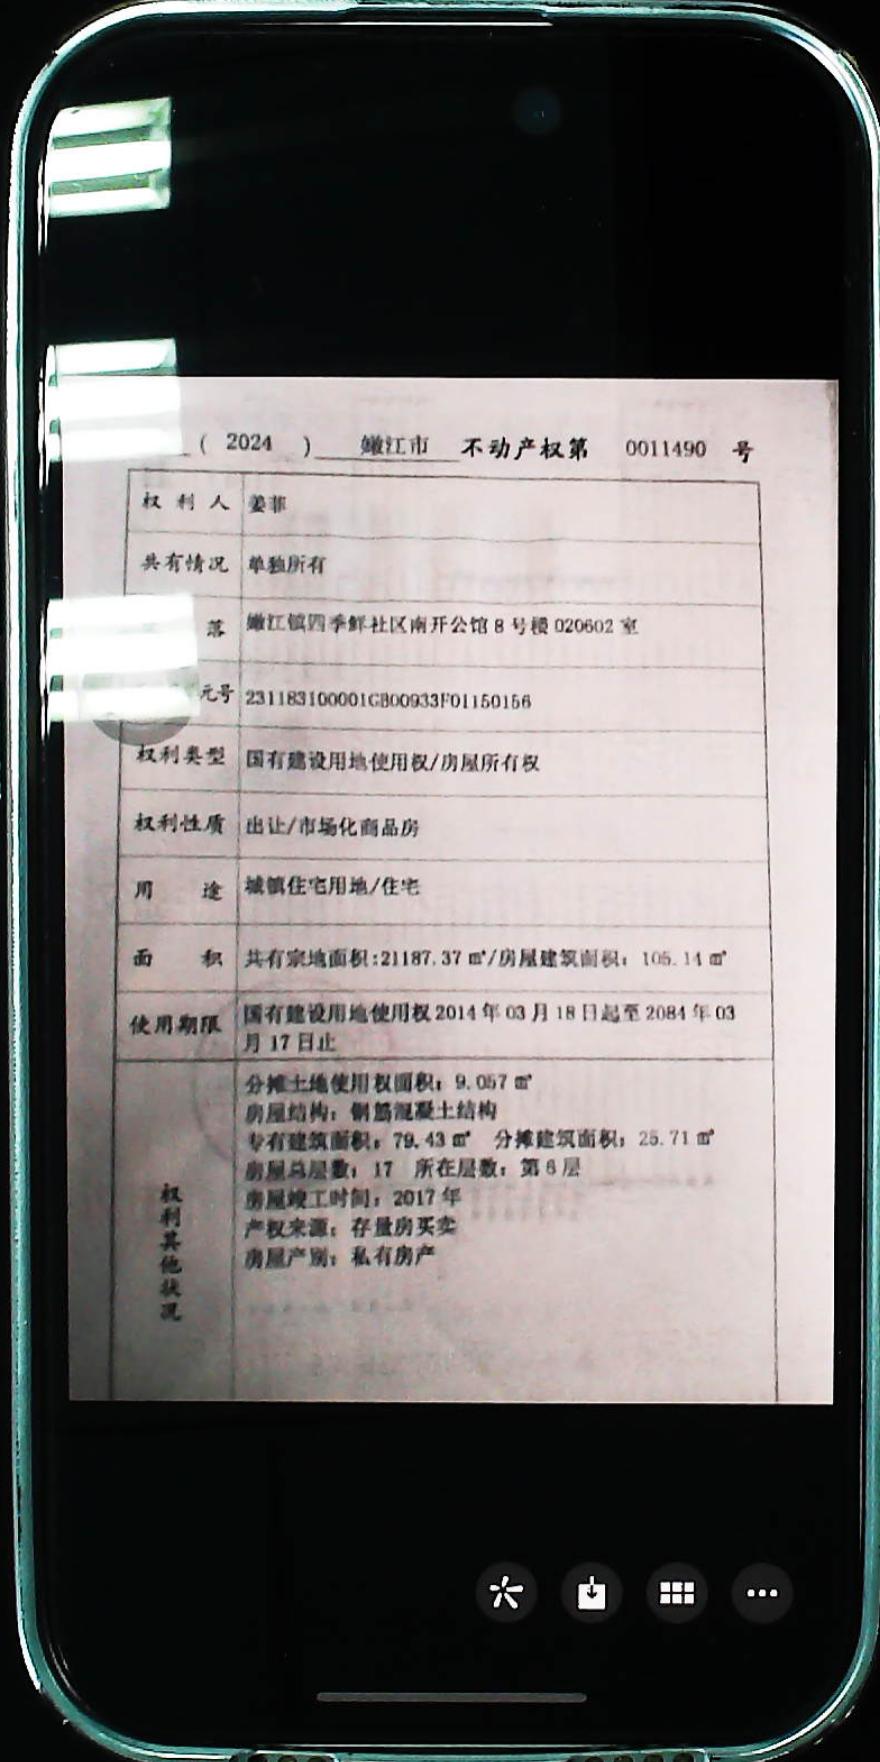 ( 2024 ) 嫩江市 不动产权第 0011490 号
权利人 姜菲
共有情况 单独所有
落 嫩江镇四季鲜社区南开公馆8号楼020602室
元号 231183100001GB00933F01150156
权利类型 国有建设用地使用权/房屋所有权
权利性质 出让/市场化商品房
用途 城镇住宅用地/住宅
面积 共有宗地面积:21187.37㎡/房屋建筑面积：105.14㎡
使用期限 国有建设用地使用权2014年03月18日起至2084年03
月17日止
权利其他状况
分摊土地使用权面积：9.057㎡
房屋结构：钢筋混凝土结构
专有建筑面积：79.43㎡ 分摊建筑面积：25.71㎡
房屋总层数：17 所在层数：第6层
房屋竣工时间：2017年
产权来源：存量房买卖
房屋产别：私有房产